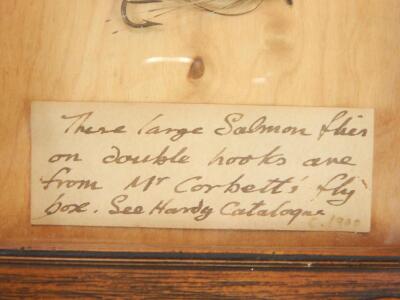 These large Salmon flies
on double hooks are
from Mr Corbett's fly
box. See Hardy Catalogue